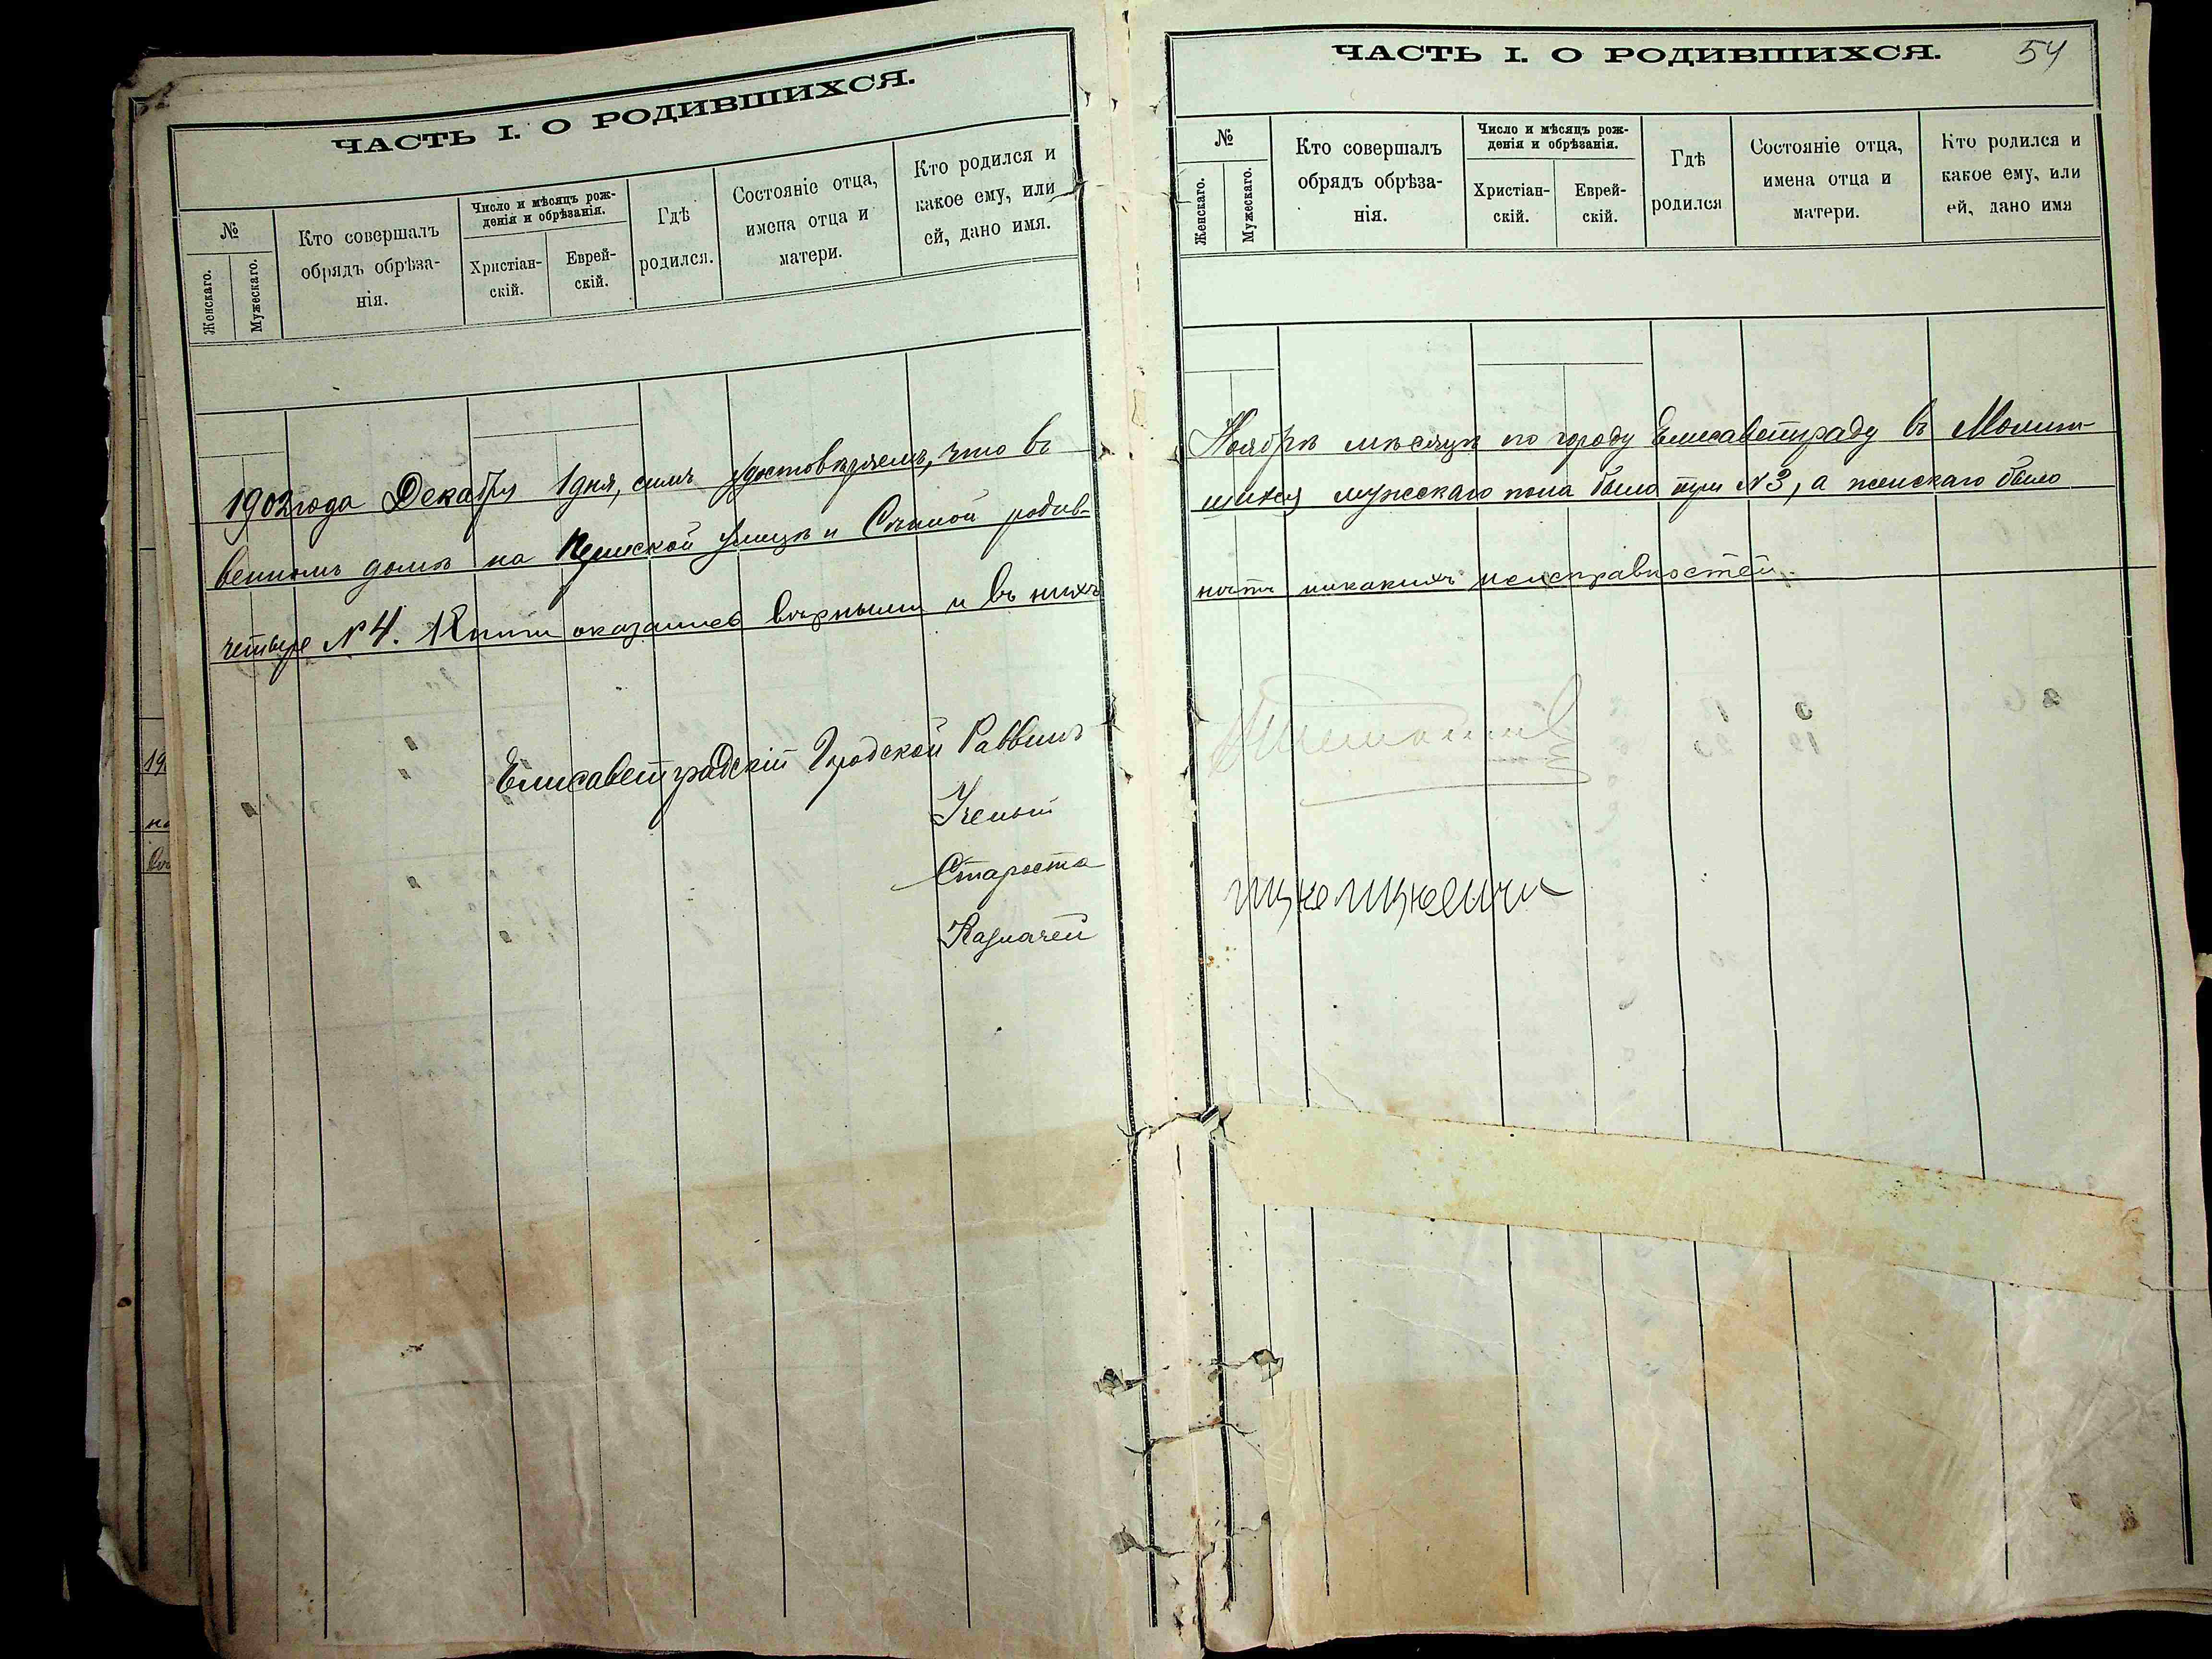 ЧАСТЬ I. О РОДИВШИХСЯ.
№
Женскаго.
Мужескаго.
Кто совершалъ
обрядъ обрѣза-
нія.
Число и мѣсяцъ рож-
денія и обрѣзанія.
Христіан-
скій.
Еврей-
скій.
Гдѣ
родился.
Состояніе отца,
имена отца и
матери.
Кто родился и
какое ему, или
ей, дано имя.
1902 года Декабря 1 дня, симъ удостовѣряемъ, что въ
венномъ домѣ на улицѣ и родив-
четыре № 4. Книги оказались вѣрными и въ нихъ
Елисаветградскій Городской Раввинъ
Ученый
Староста
Казначей
ЧАСТЬ I. О РОДИВШИХСЯ.
54
№
Женскаго.
Мужескаго.
Кто совершалъ
обрядъ обрѣза-
нія.
Число и мѣсяцъ рож-
денія и обрѣзанія.
Христіан-
скій.
Еврей-
скій.
Гдѣ
родился
Состояніе отца,
имена отца и
матери.
Кто родился и
какое ему, или
ей, дано имя
Ноябрѣ мѣсяцѣ по городу Елисаветграду въ Молит-
шихся мужескаго пола было три № 3, а женскаго было
нѣтъ никакихъ неисправностей.